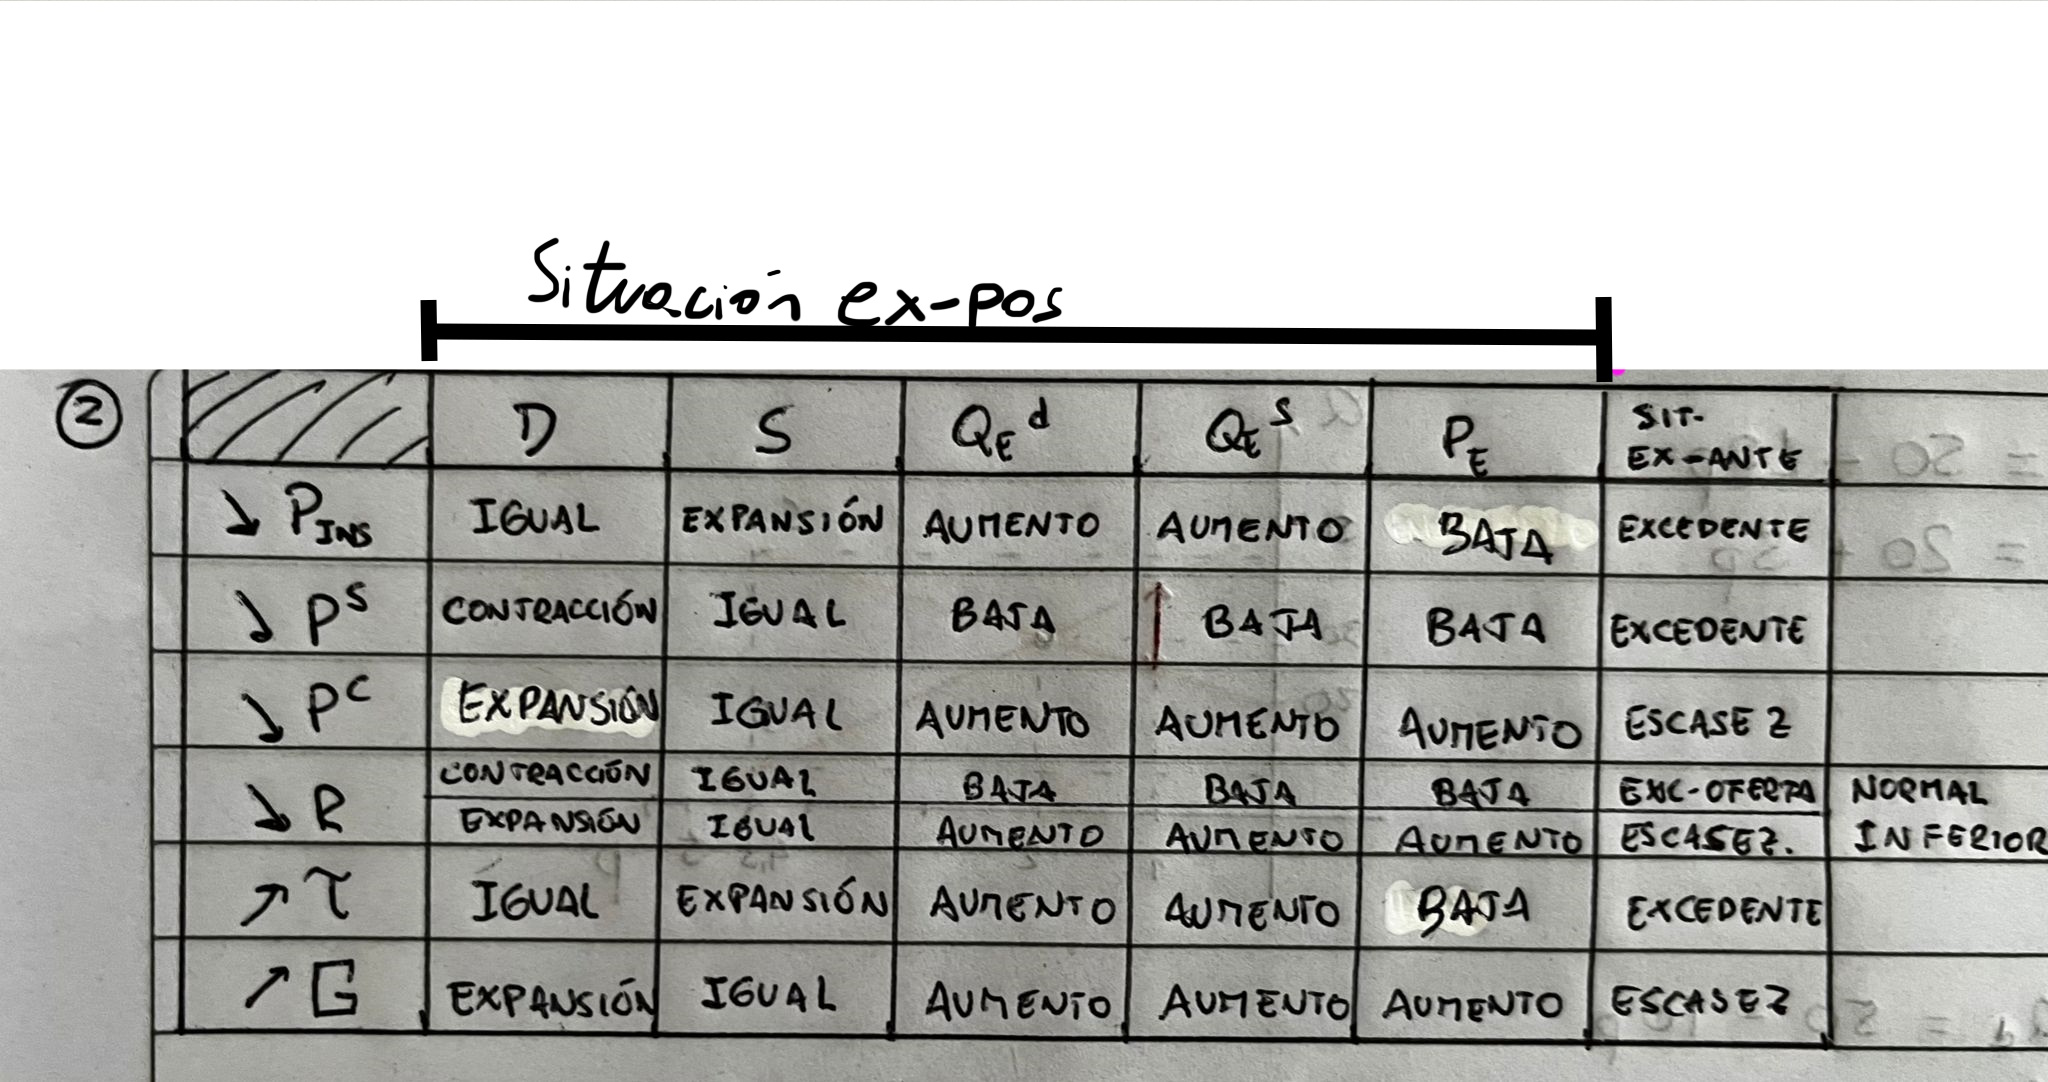 Situación ex-pos
2
D S QE^d QE^S PE SIT. EX-ANTE
↘ PINS IGUAL EXPANSIÓN AUMENTO AUMENTO BAJA EXCEDENTE
↘ P^S CONTRACCIÓN IGUAL BAJA BAJA BAJA EXCEDENTE
↘ P^C EXPANSIÓN IGUAL AUMENTO AUMENTO AUMENTO ESCASEZ
↘ R CONTRACCIÓN IGUAL BAJA BAJA BAJA EXC-OFERTA NORMAL
EXPANSIÓN IGUAL AUMENTO AUMENTO AUMENTO ESCASEZ. INFERIOR
↗ τ IGUAL EXPANSIÓN AUMENTO AUMENTO BAJA EXCEDENTE
↗ G EXPANSIÓN IGUAL AUMENTO AUMENTO AUMENTO ESCASEZ